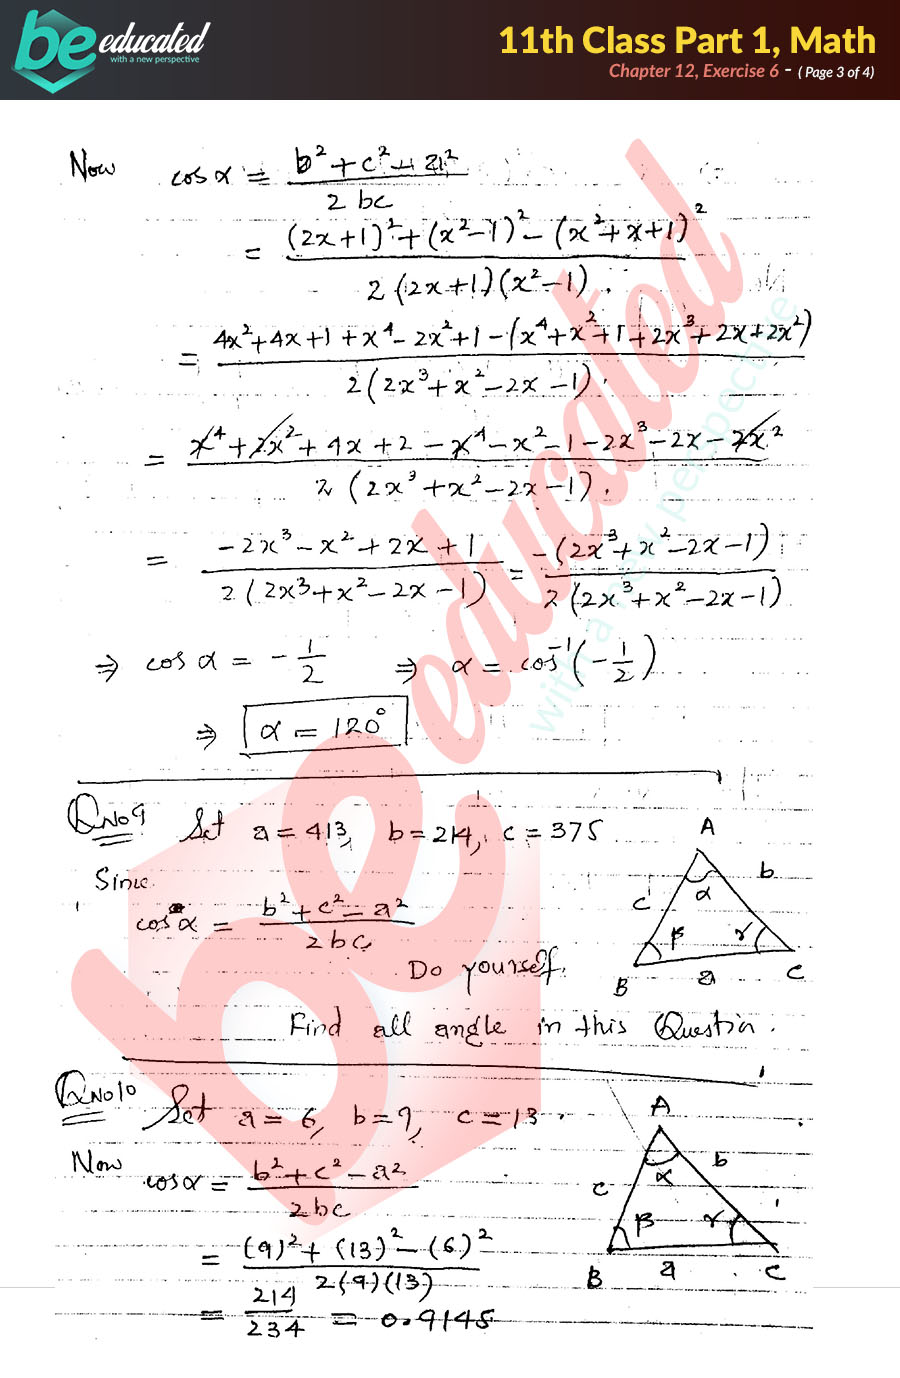 be educated
with a new perspective
11th Class Part 1, Math
Chapter 12, Exercise 6 - ( Page 3 of 4)
Now cos α = (b² + c² − a²) / 2 bc
= ((2x+1)² + (x²−1)² − (x²+x+1)²) / 2 (2x+1)(x²−1).
= (4x²+4x+1+x⁴−2x²+1−(x⁴+x²+1+2x³+2x+2x²)) / 2(2x³+x²−2x−1).
= (x⁴+2x²+4x+2−x⁴−x²−1−2x³−2x−2x²) / 2 (2x³+x²−2x−1).
= (−2x³−x²+2x+1) / 2(2x³+x²−2x−1) = −(2x³+x²−2x−1) / 2(2x³+x²−2x−1)
⇒ cos α = −1/2 ⇒ α = cos⁻¹(−1/2)
⇒ α = 120°
Q No 9 Set a = 413, b = 214, c = 375
Since
cos α = (b² + c² − a²) / 2bc
Do yourself.
Find all angle in this Question.
A
b
c
α
β
γ
B
a
C
Q No 10 Set a = 6, b = 9, c = 13.
Now cos α = (b² + c² − a²) / 2bc
= ((9)² + (13)² − (6)²) / 2(9)(13)
= 214/234 = 0.9145
A
b
c
α
β
γ
B
a
C
be educated
with a new perspective